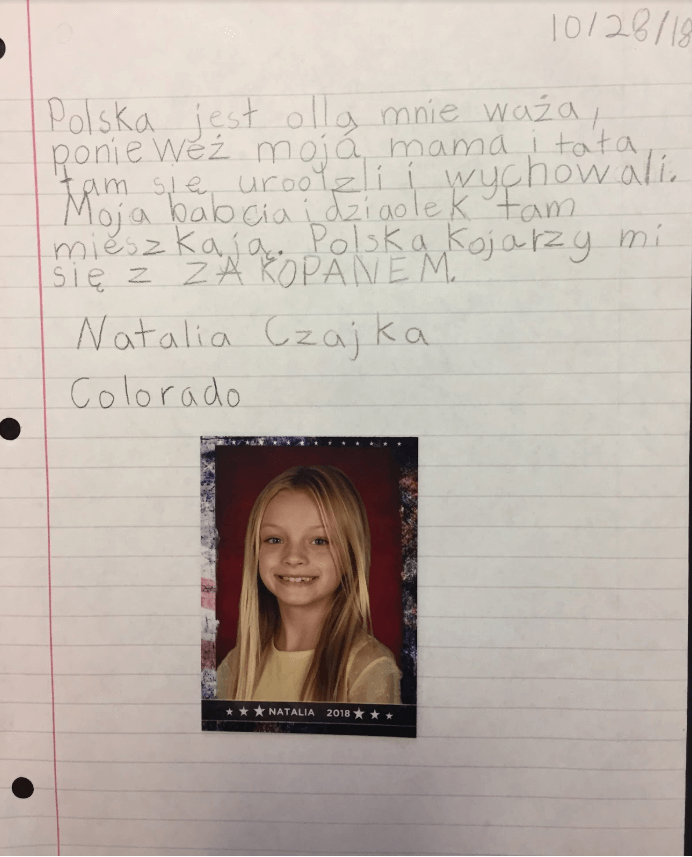 10/28/18
Polska jest dla mnie waża,
ponieweż moja mama i tata
tam się urodzli i wychowali.
Moja babcia i dziadek tam
mieszkają. Polska kojarzy mi
się z ZAKOPANEM.
Natalia Czajka
Colorado
NATALIA 2018